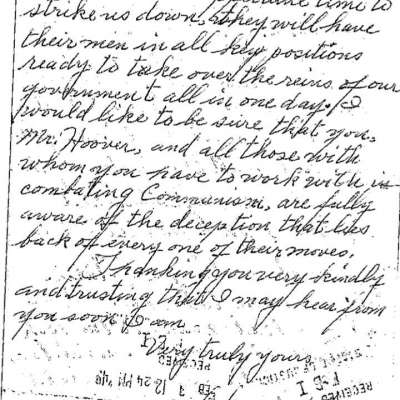 time to
strike us down, they will have
their men in all key positions
ready to take over the reins of our
government all in one day. I
would like to be sure that you,
Mr. Hoover, and all those with
whom you have to work with in
combating Communism, are fully
aware of the deception that lies
back of every one of their moves.
Thanking you very kindly
and trusting that I may hear from
you soon I am
Very truly yours
RECEIVED
FEB
F B I
RECEIVED